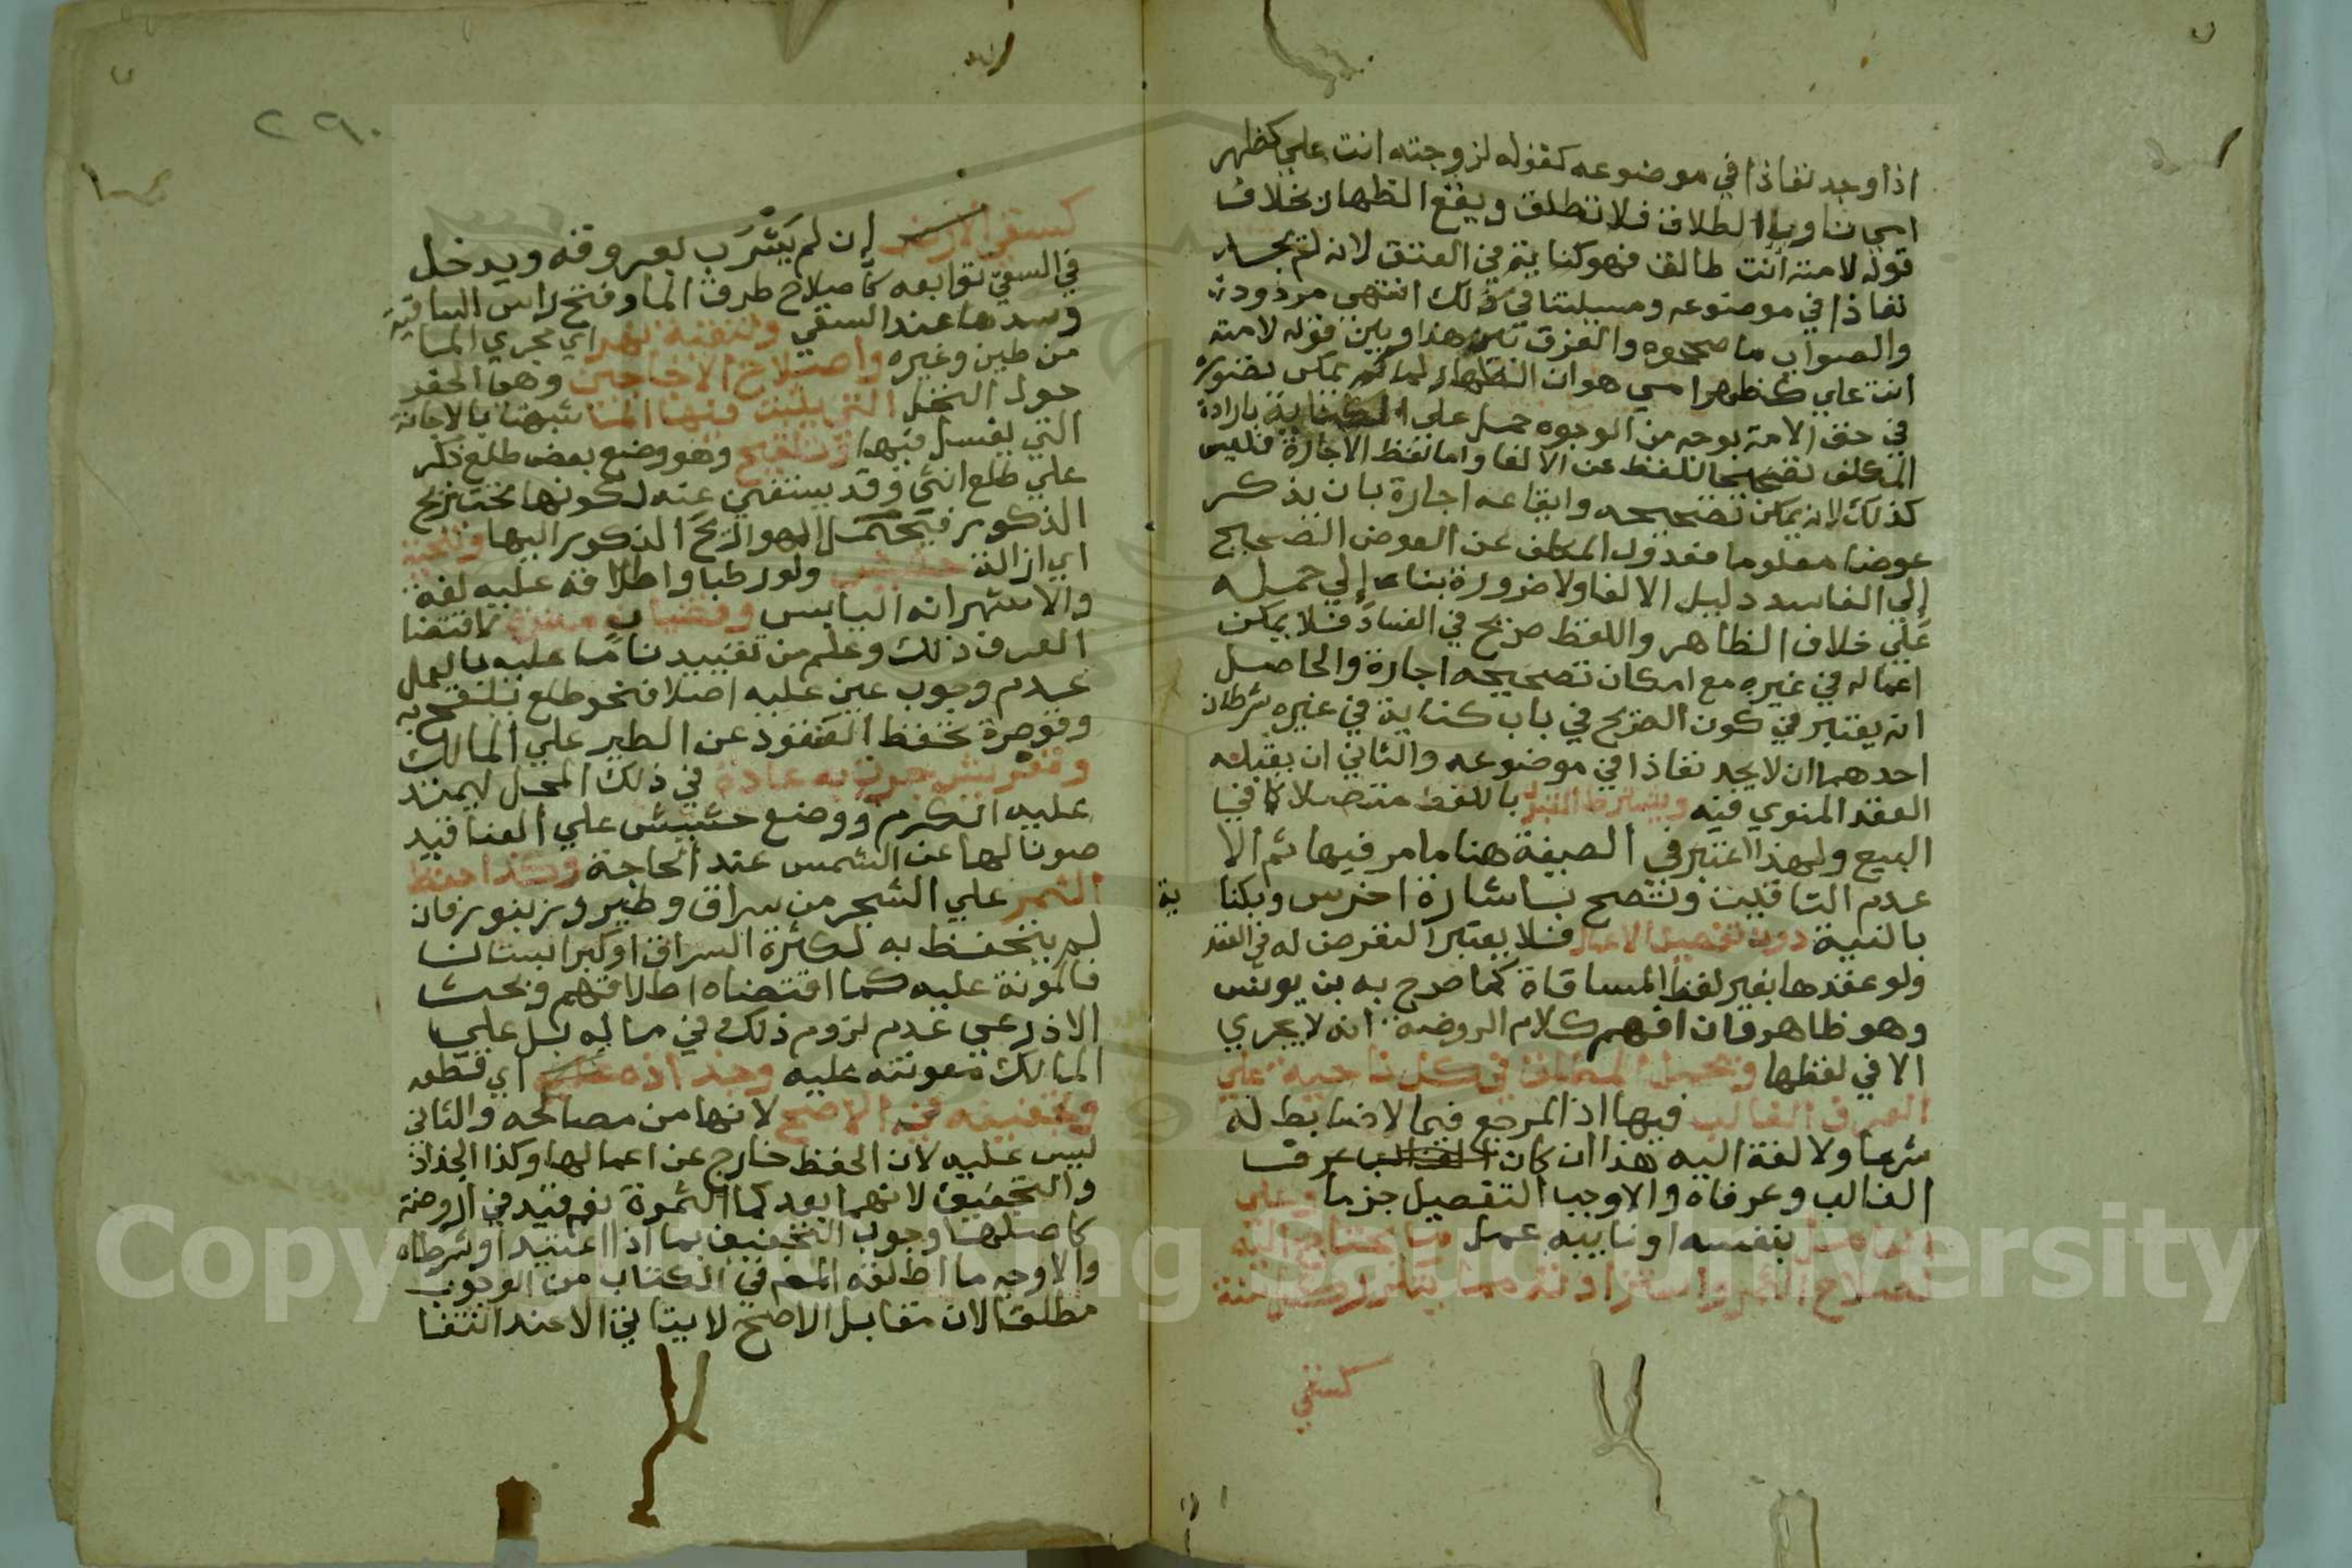 اذا وجد نفاذا في موضوعه كقوله لزوجته انت علي كظهر
امي ناويا الطلاق فلا تطلق ويقع الظهار بخلاف
قوله لامته انت طالق فهو كناية في العتق لانه لم يجد
نفاذا في موضوعه ومسيلتنا في ذلك انتهي مردود
والصواب ما صححوه والفرق بين هذا وبين قوله لامته
انت علي كظهر امي هو ان الظهار لما لم يمكن تصوره
في حق الامة بوجه من الوجوه حمل علي الكناية بارادة
المكلف تصحيحا للفظ عن الالغا واما لفظ الاجارة فليس
كذلك لانه يمكن تصحيحه وايقاعه اجارة بان يذكر
عوضا معلوما فعدول المكلف عن العوض الصحيح
إلي الفاسد دليل الالغا ولا ضرورة بنا إلي حمله
علي خلاف الظاهر واللفظ صريح في الفساد فلا يمكن
اعماله في غيره مع امكان تصحيحه اجارة والحاصل
انه يعتبر في كون الصريح في باب كناية في غيره شرطان
احدهما ان لا يجد نفاذا في موضوعه والثاني ان يقبله
العقد المنوي فيه ويشترط القبول باللفظ متصلا كما في
البيع ولهذا اعتبر في الصيغة هنا ما مر فيها ثم الا
عدم التاقيت وتصح باشارة اخرس وبكنا ية
بالنية دون تفصيل الاعمال فلا يعتبر التعرض له في العقد
ولو عقدها بغير لفظ المساقاة كما صرح به بن يونس
وهو ظاهر وان افهم كلام الروضة انه لا يجري
الا في لفظها ويحمل المطلق في كل ناحية علي
العرف الغالب فيها اذ المرجع فيما لا ضابط له
شرعا ولا لغة اليه هذا ان كان عرف
الغالب وعرفاه والاوجب التفصيل جزما وعلي
العامل بنفسه او نايبه عمل ما يحتاج اليه
لصلاح الثمر واستزادته مما يتكرر كل سنة
كسقي
٢٩٠
كسقي الارض إن لم يَشْرَب بعروقه ويدخل
في السقي توابعه كاصلاح طرق الما وفتح راس الساقية
وسدها عند السقي وتنقية نهر اي مجري الما
من طين وغيره واصلاح الاجاجين وهي الحفر
حول النخل التي يثبت فيها الما شبهت بالاجانة
التي يغسل فيها وتلقيح وهو وضع بعض طلع ذكر
علي طلع انثي وقد يستغني عنه لكونها تحت ريح
الذكور فيحمل الهوا ريح الذكور اليها وتنحية
اي ازالة حشيش ولو رطبا واطلاقه عليه لغة
والاشهر انه اليابس وقضبان مضرة لاقتضا
العرف ذلك وعلم من تقييدنا ما عليه بالعمل
عدم وجوب عين عليه اصلا فنحو طلع يلقح به
وقوصرة تحفظ العنقود عن الطير علي المالك
وتعريش جرت به عادة في ذلك المحل ليمتد
عليه الكرم ووضع حشيش علي العناقيد
صونا لها عن الشمس عند الحاجة وكذا حفظ
الثمر علي الشجر من سراق وطير وزنبور فان
لم يتحفظ به لكثرة السراق او كبر البستان
فالمونة عليه كما اقتضاه اطلاقهم وبحث
الاذرعي عدم لزوم ذلك في ماله بل علي
المالك معونته عليه وجذاذه اي قطعه
وتجفيفه في الاصح لانها من مصالحه والثاني
ليس عليه لان الحفظ خارج عن اعمالها وكذا الجذاذ
والتجفيف لانهما بعد كما الثمرة نعم قيد في الروضة
كاصلها وجوب التجفيف بما اذا اعتيد او شرطاه
والاوجه ما اطلقه المص في الكتاب من الوجوب
مطلقا لان مقابل الاصح لا يتاتي الا عند انتفا
Copyright © King Saud University